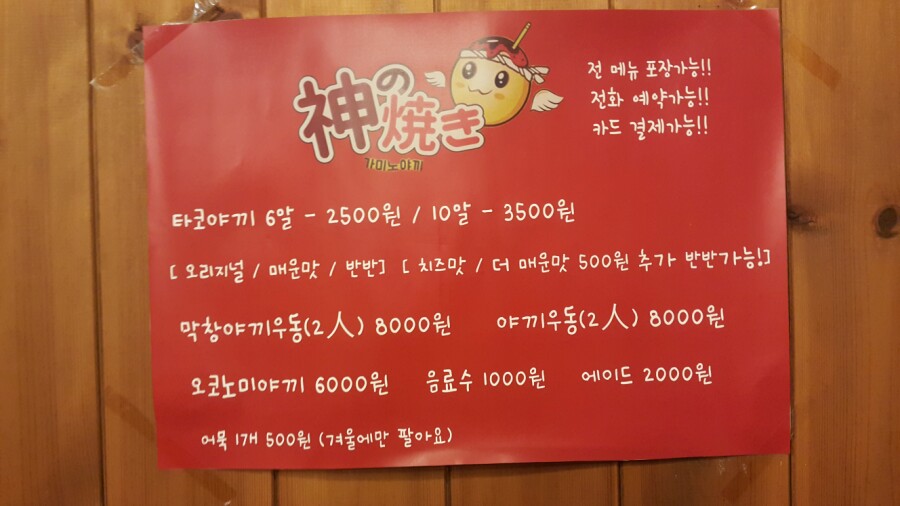 神の焼き
가미노야끼
전 메뉴 포장가능!!
전화 예약가능!!
카드 결제가능!!
타코야끼 6알 - 2500원 / 10알 - 3500원
[ 오리지널 / 매운맛 / 반반] [ 치즈맛 / 더 매운맛 500원 추가 반반가능!]
막창야끼우동(2人) 8000원 야끼우동(2人) 8000원
오코노미야끼 6000원 음료수 1000원 에이드 2000원
어묵 1개 500원 (겨울에만 팔아요)